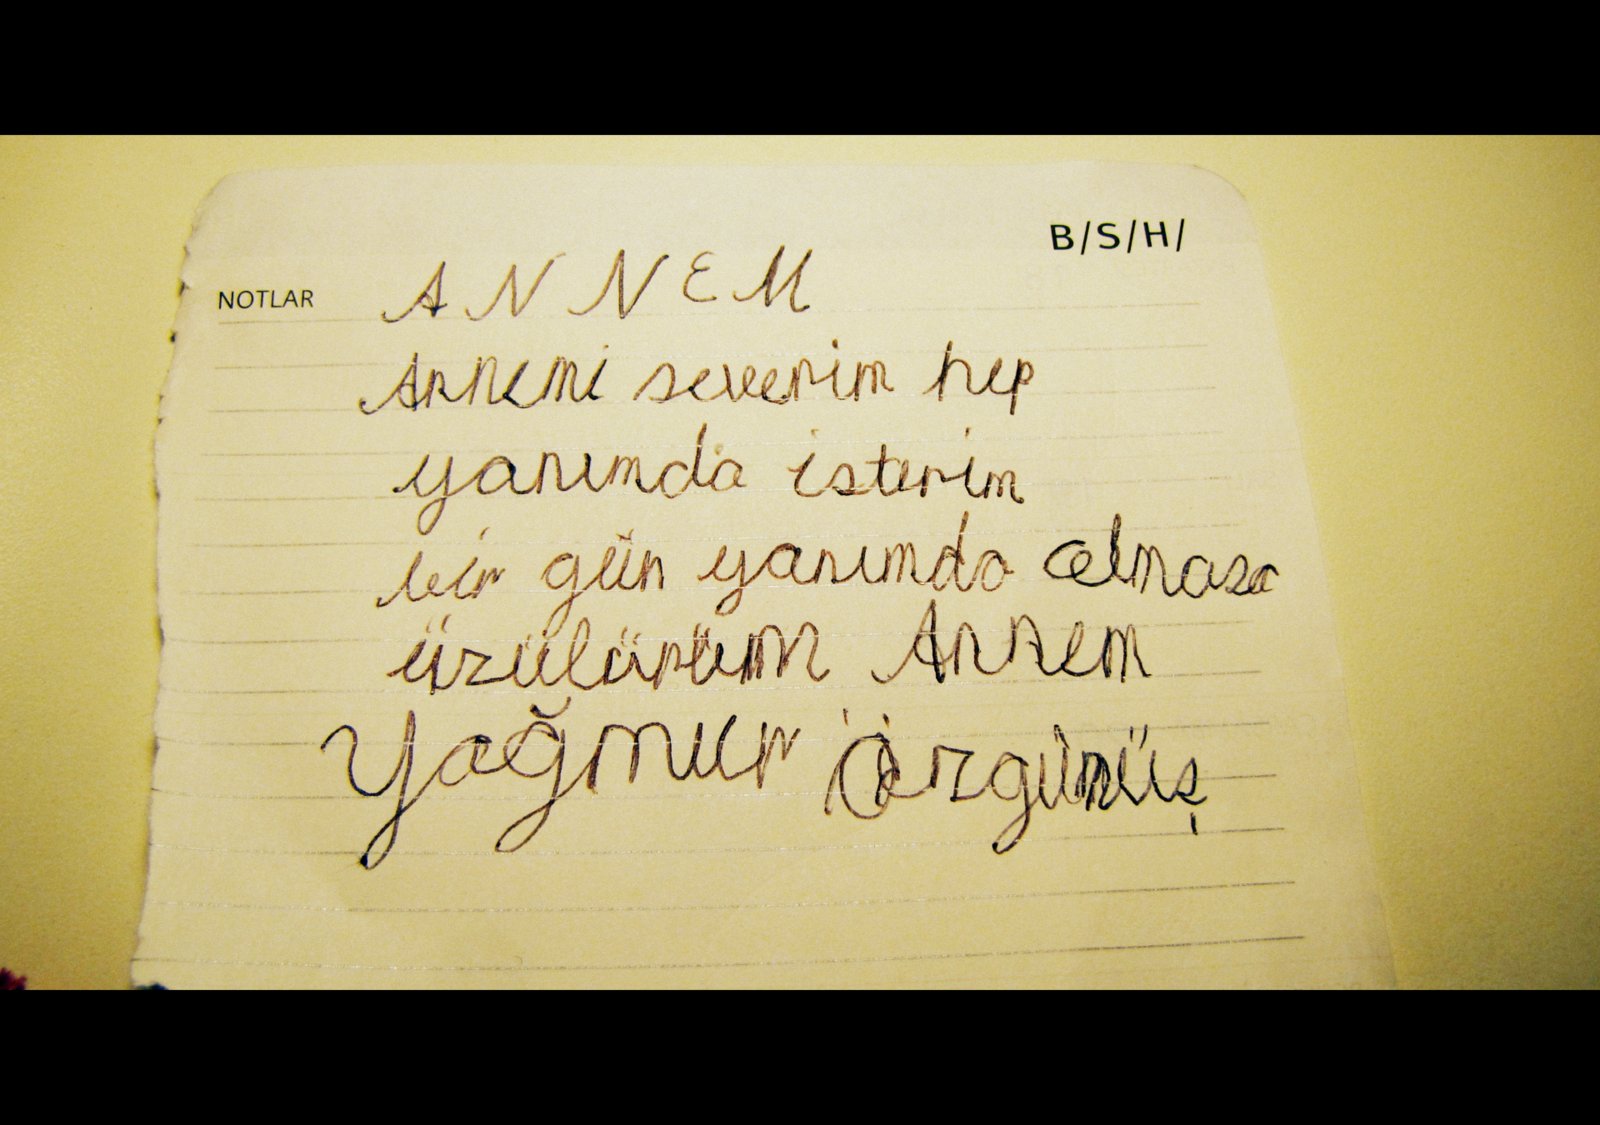 B/S/H/
NOTLAR ANNEM
Annemi severim hep
yanımda isterim
bir gün yanımda olmasa
üzülürüm Annem
Yağmur Özgünüş